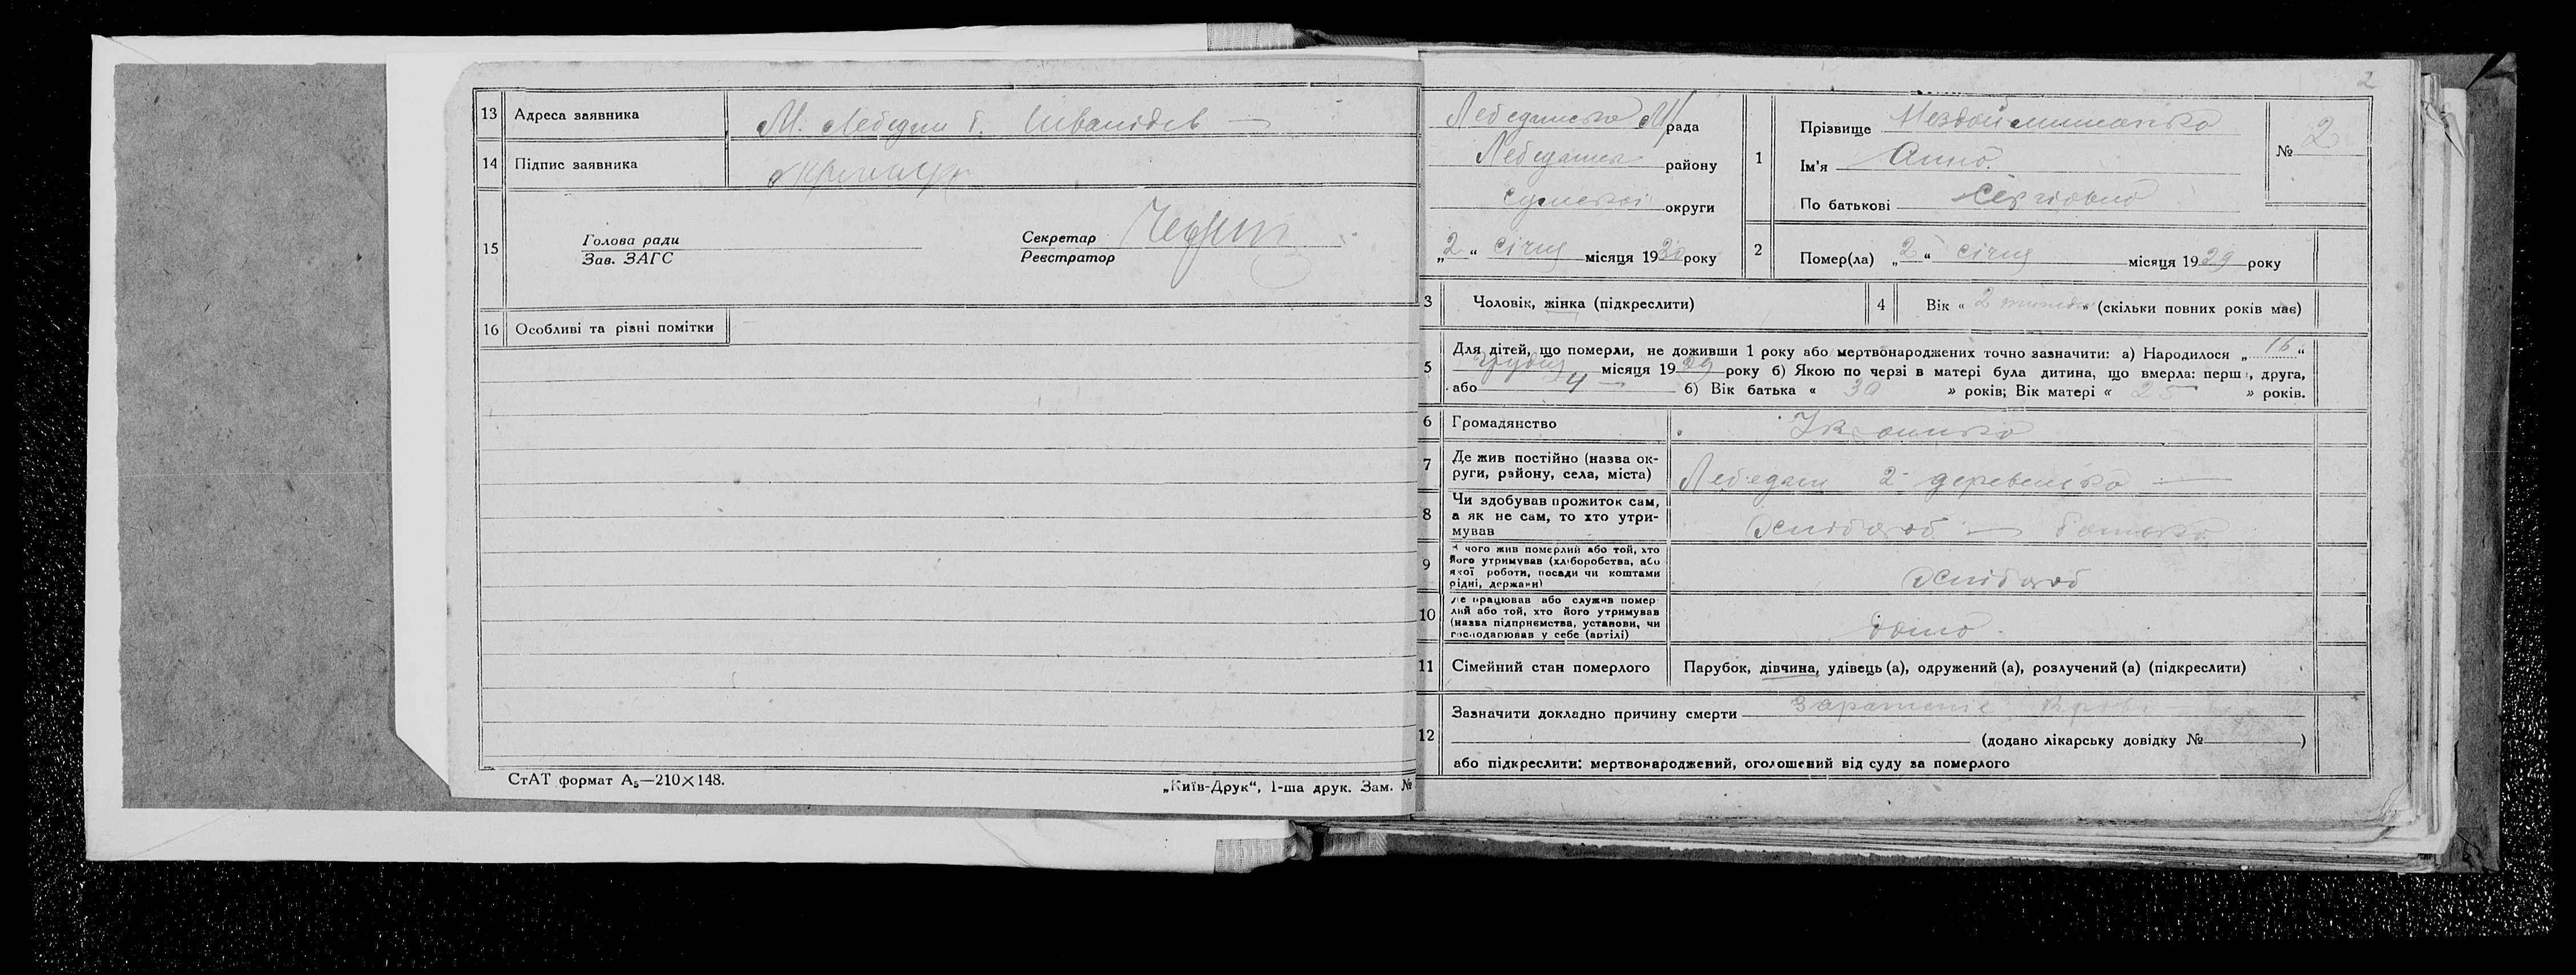 13 Адреса заявника М. Лебедин б. Інвалідів —
14 Підпис заявника
15 Голова ради
Зав. ЗАГС
Секретар
Реєстратор
16 Особливі та різні помітки
СтАТ формат А₅—210×148.
„Київ-Друк“, 1-ша друк. Зам. №
2
Лебединська М рада
Лебединськ району
Сумської округи
„2“ січня місяця 1930 року
1 Прізвище
Ім'я Анна
По батькові Сергіовна
№ 2
2 Помер(ла) „2“ січня місяця 1929 року
3 Чоловік, жінка (підкреслити)
4 Вік « 2 тижні » (скільки повних років має)
5 Для дітей, що померли, не доживши 1 року або мертвонароджених точно зазначити: а) Народилося „16“
грудня місяця 1929 року б) Якою по черзі в матері була дитина, що вмерла: перша, друга,
або 4 — б) Вік батька « 30 » років; Вік матері « 25 » років.
6 Громадянство Українка
7 Де жив постійно (назва ок-
руги, району, села, міста) Лебедин 2 деревенська —
8 Чи здобував прожиток сам,
а як не сам, то хто утри-
мував — батько
9 З чого жив померлий або той, хто
його утримував (хліборобства, або
якої роботи, посади чи коштами
рідні, держави)
10 Де працював або служив помер
лий або той, хто його утримував
(назва підприємства, установи, чи
господарював у себе (артілі) дома
11 Сімейний стан померлого Парубок, дівчина, удівець (а), одружений (а), розлучений (а) (підкреслити)
12 Зазначити докладно причину смерти Заражение крові
(додано лікарську довідку № )
або підкреслити: мертвонароджений, оголошений від суду за померлого